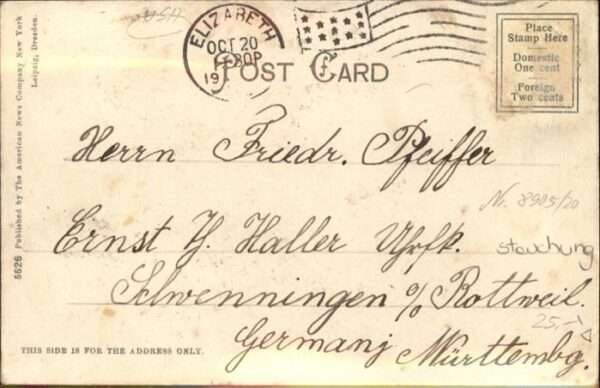 USA
ELIZABETH
OCT 20
30P
19
POST CARD
Place
Stamp Here
Domestic
One cent
Foreign
Two cents
Herrn Friedr. Pfeiffer
N. 8905/20
Ernst Y. Haller Uhrfk.
stauchung
Schwenningen a/ Rottweil.
25,-
Germany Württembg.
THIS SIDE IS FOR THE ADDRESS ONLY.
5626 Published by The American News Company New York
Leipzig, Dresden.